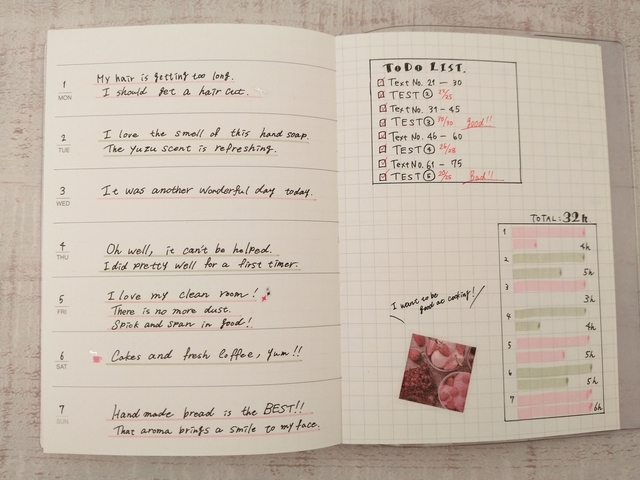 1
MON
My hair is getting too long.
I should get a hair cut.
2
TUE
I love the smell of this hand soap.
The yuzu scent is refreshing.
3
WED
It was another wonderful day today.
4
THU
Oh well, it can't be helped.
I did pretty well for a first timer.
5
FRI
I love my clean room!
There is no more dust.
Spick and span in good!
6
SAT
Cakes and fresh coffee, yum!!
7
SUN
Hand made bread is the BEST!!
That aroma brings a smile to my face.
TODO LIST.
Text No. 21 - 30
TEST ②
Text No. 31 - 45
TEST ③ good!!
Text No. 46 - 60
TEST ④
Text No. 61 - 75
TEST ⑤ Bad!!
TOTAL: 32h.
1
4h
2
5h
3
3h
4
4h
5
5h
6
5h
7
6h
I want to be
good at cooking!